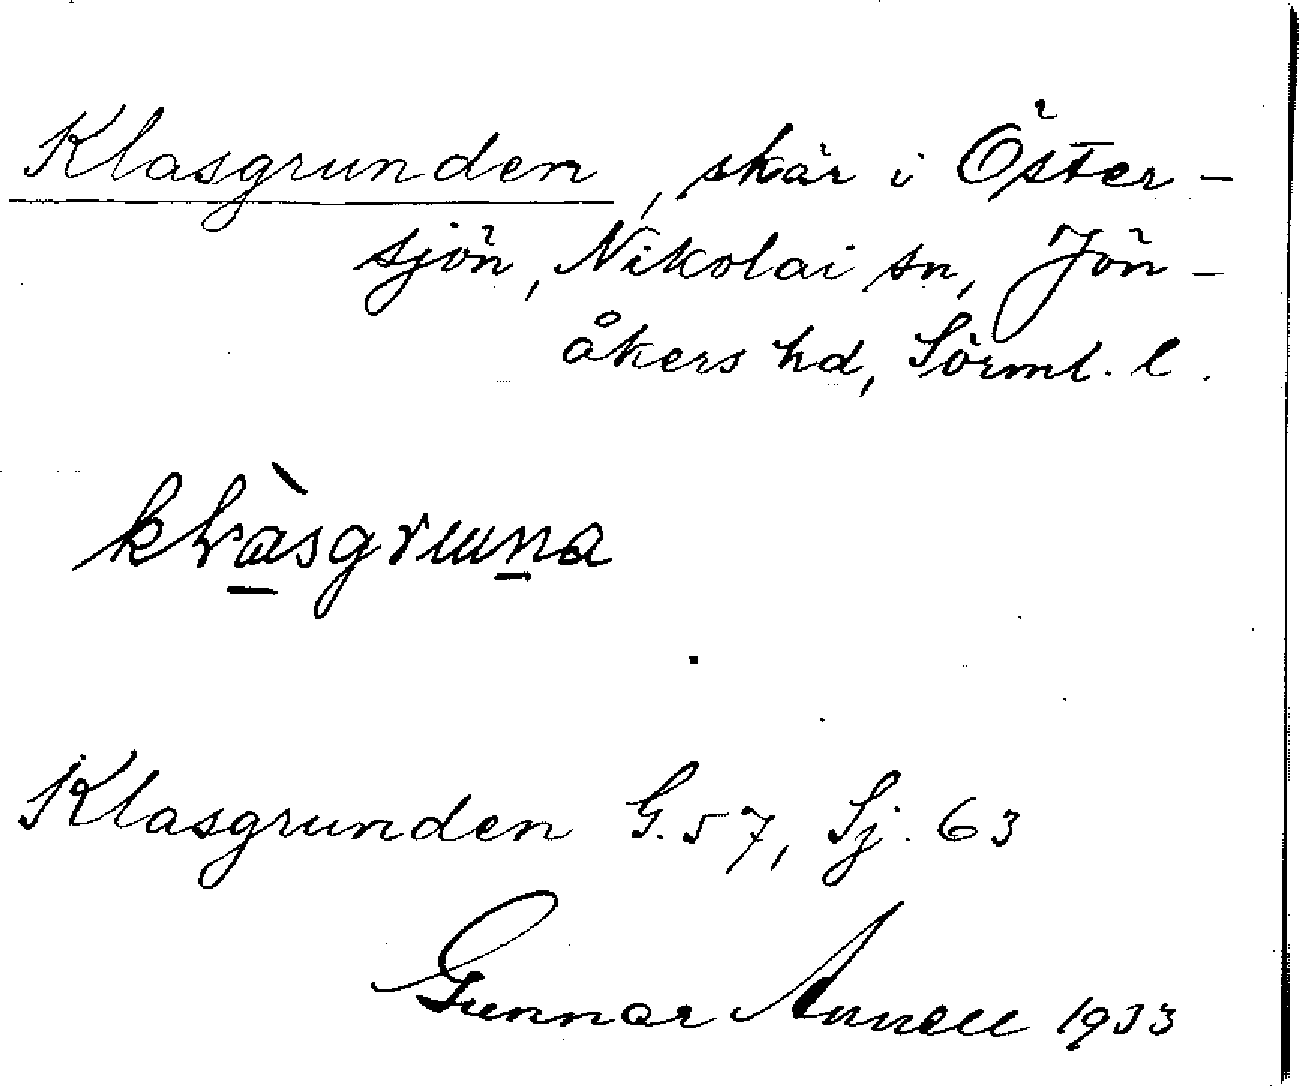 Klasgrunden, skär i Öster-
sjön, Nikolai sn, Jön-
åkers hd, Sörml. l.
klàsgruna
Klasgrunden G.57, Sj. 63
Gunnar Annell 1933